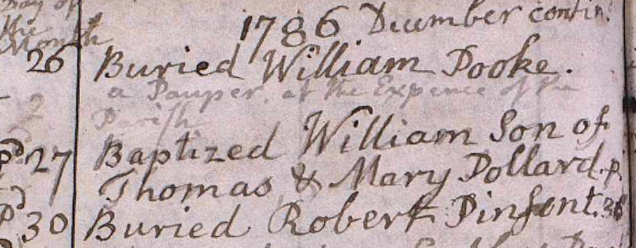 Day of
the
Month
1786 December contin.
26 Buried William Pooke.
a Pauper. at the Expence of the
Parish
27 Baptized William Son of
Thomas & Mary Dollard.p.
30 Buried Robert Pinsent.